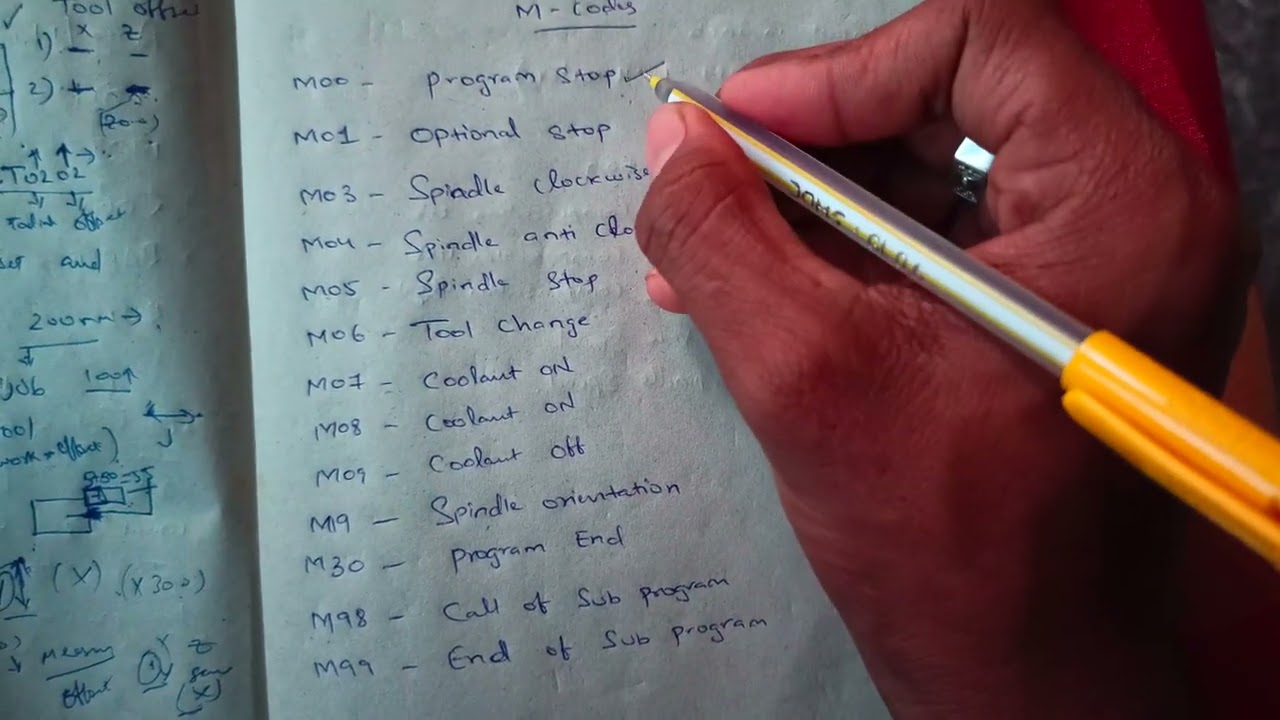 Tool offset
1) X Z
2)
T0202
Tool offset
set and
200mm
job 100
tool
(work offset)
(X) (X300)
Means
offset
X Z
(X)
M-Codes
M00 - Program Stop
M01 - Optional Stop
M03 - Spindle Clockwise
M04 - Spindle anti Clo
M05 - Spindle Stop
M06 - Tool Change
M07 - Coolant ON
M08 - Coolant ON
M09 - Coolant Off
M19 - Spindle orientation
M30 - Program End
M98 - Call of Sub program
M99 - End of Sub program